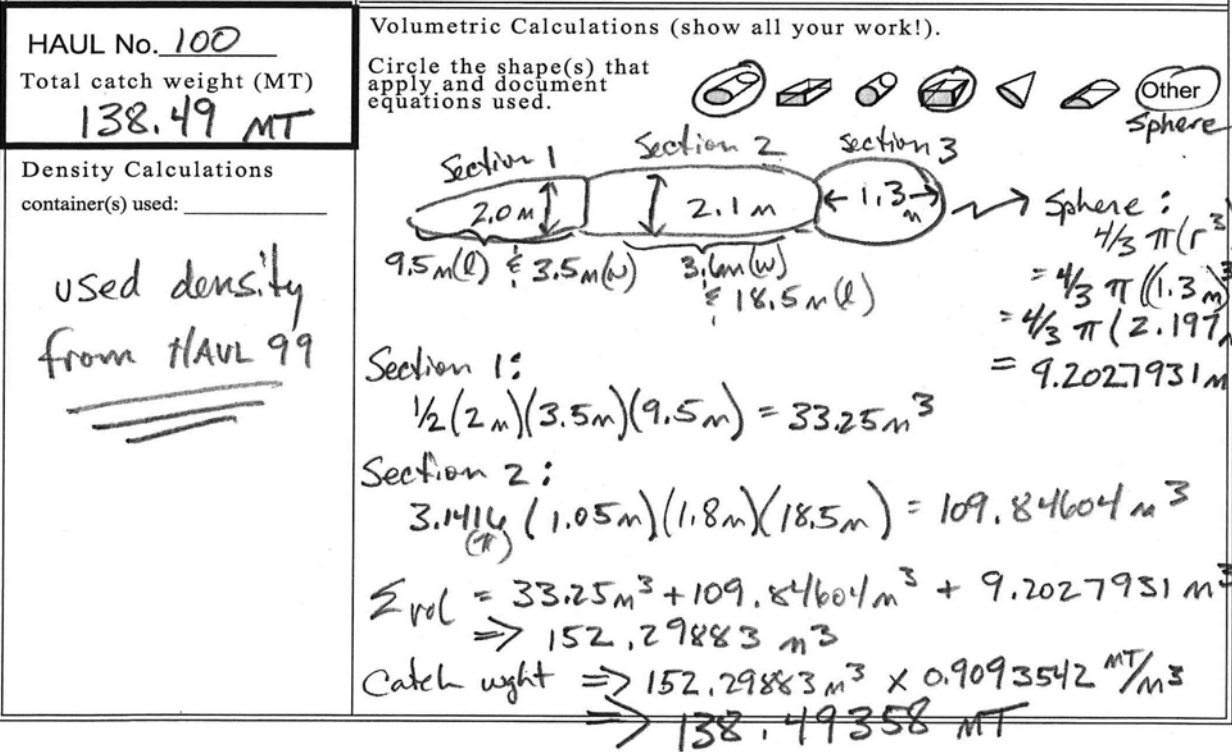 HAUL No. 100
Total catch weight (MT)
138.49 MT
Density Calculations
container(s) used:
used density
from HAUL 99
Volumetric Calculations (show all your work!).
Circle the shape(s) that
apply and document
equations used.
Other
Sphere
Section 1
Section 2
Section 3
2.0 m
2.1 m
1.3 m
9.5m(l) & 3.5m(w)
3.6m(w)
& 18.5m(l)
Sphere:
4/3 π(r³
= 4/3 π((1.3m)³
= 4/3 π(2.197
= 9.2027931m
Section 1:
1/2(2m)(3.5m)(9.5m) = 33.25m³
Section 2:
3.1416 (1.05m)(1.8m)(18.5m) = 109.84604 m³
(π)
Σvol = 33.25m³ + 109.84604m³ + 9.2027931 m³
=> 152.29883 m³
Catch wght => 152.29883m³ x 0.9093542 MT/m³
=> 138.49358 MT